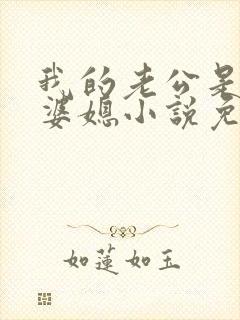 我的老公是
婆媳小説免
如蓮如玉